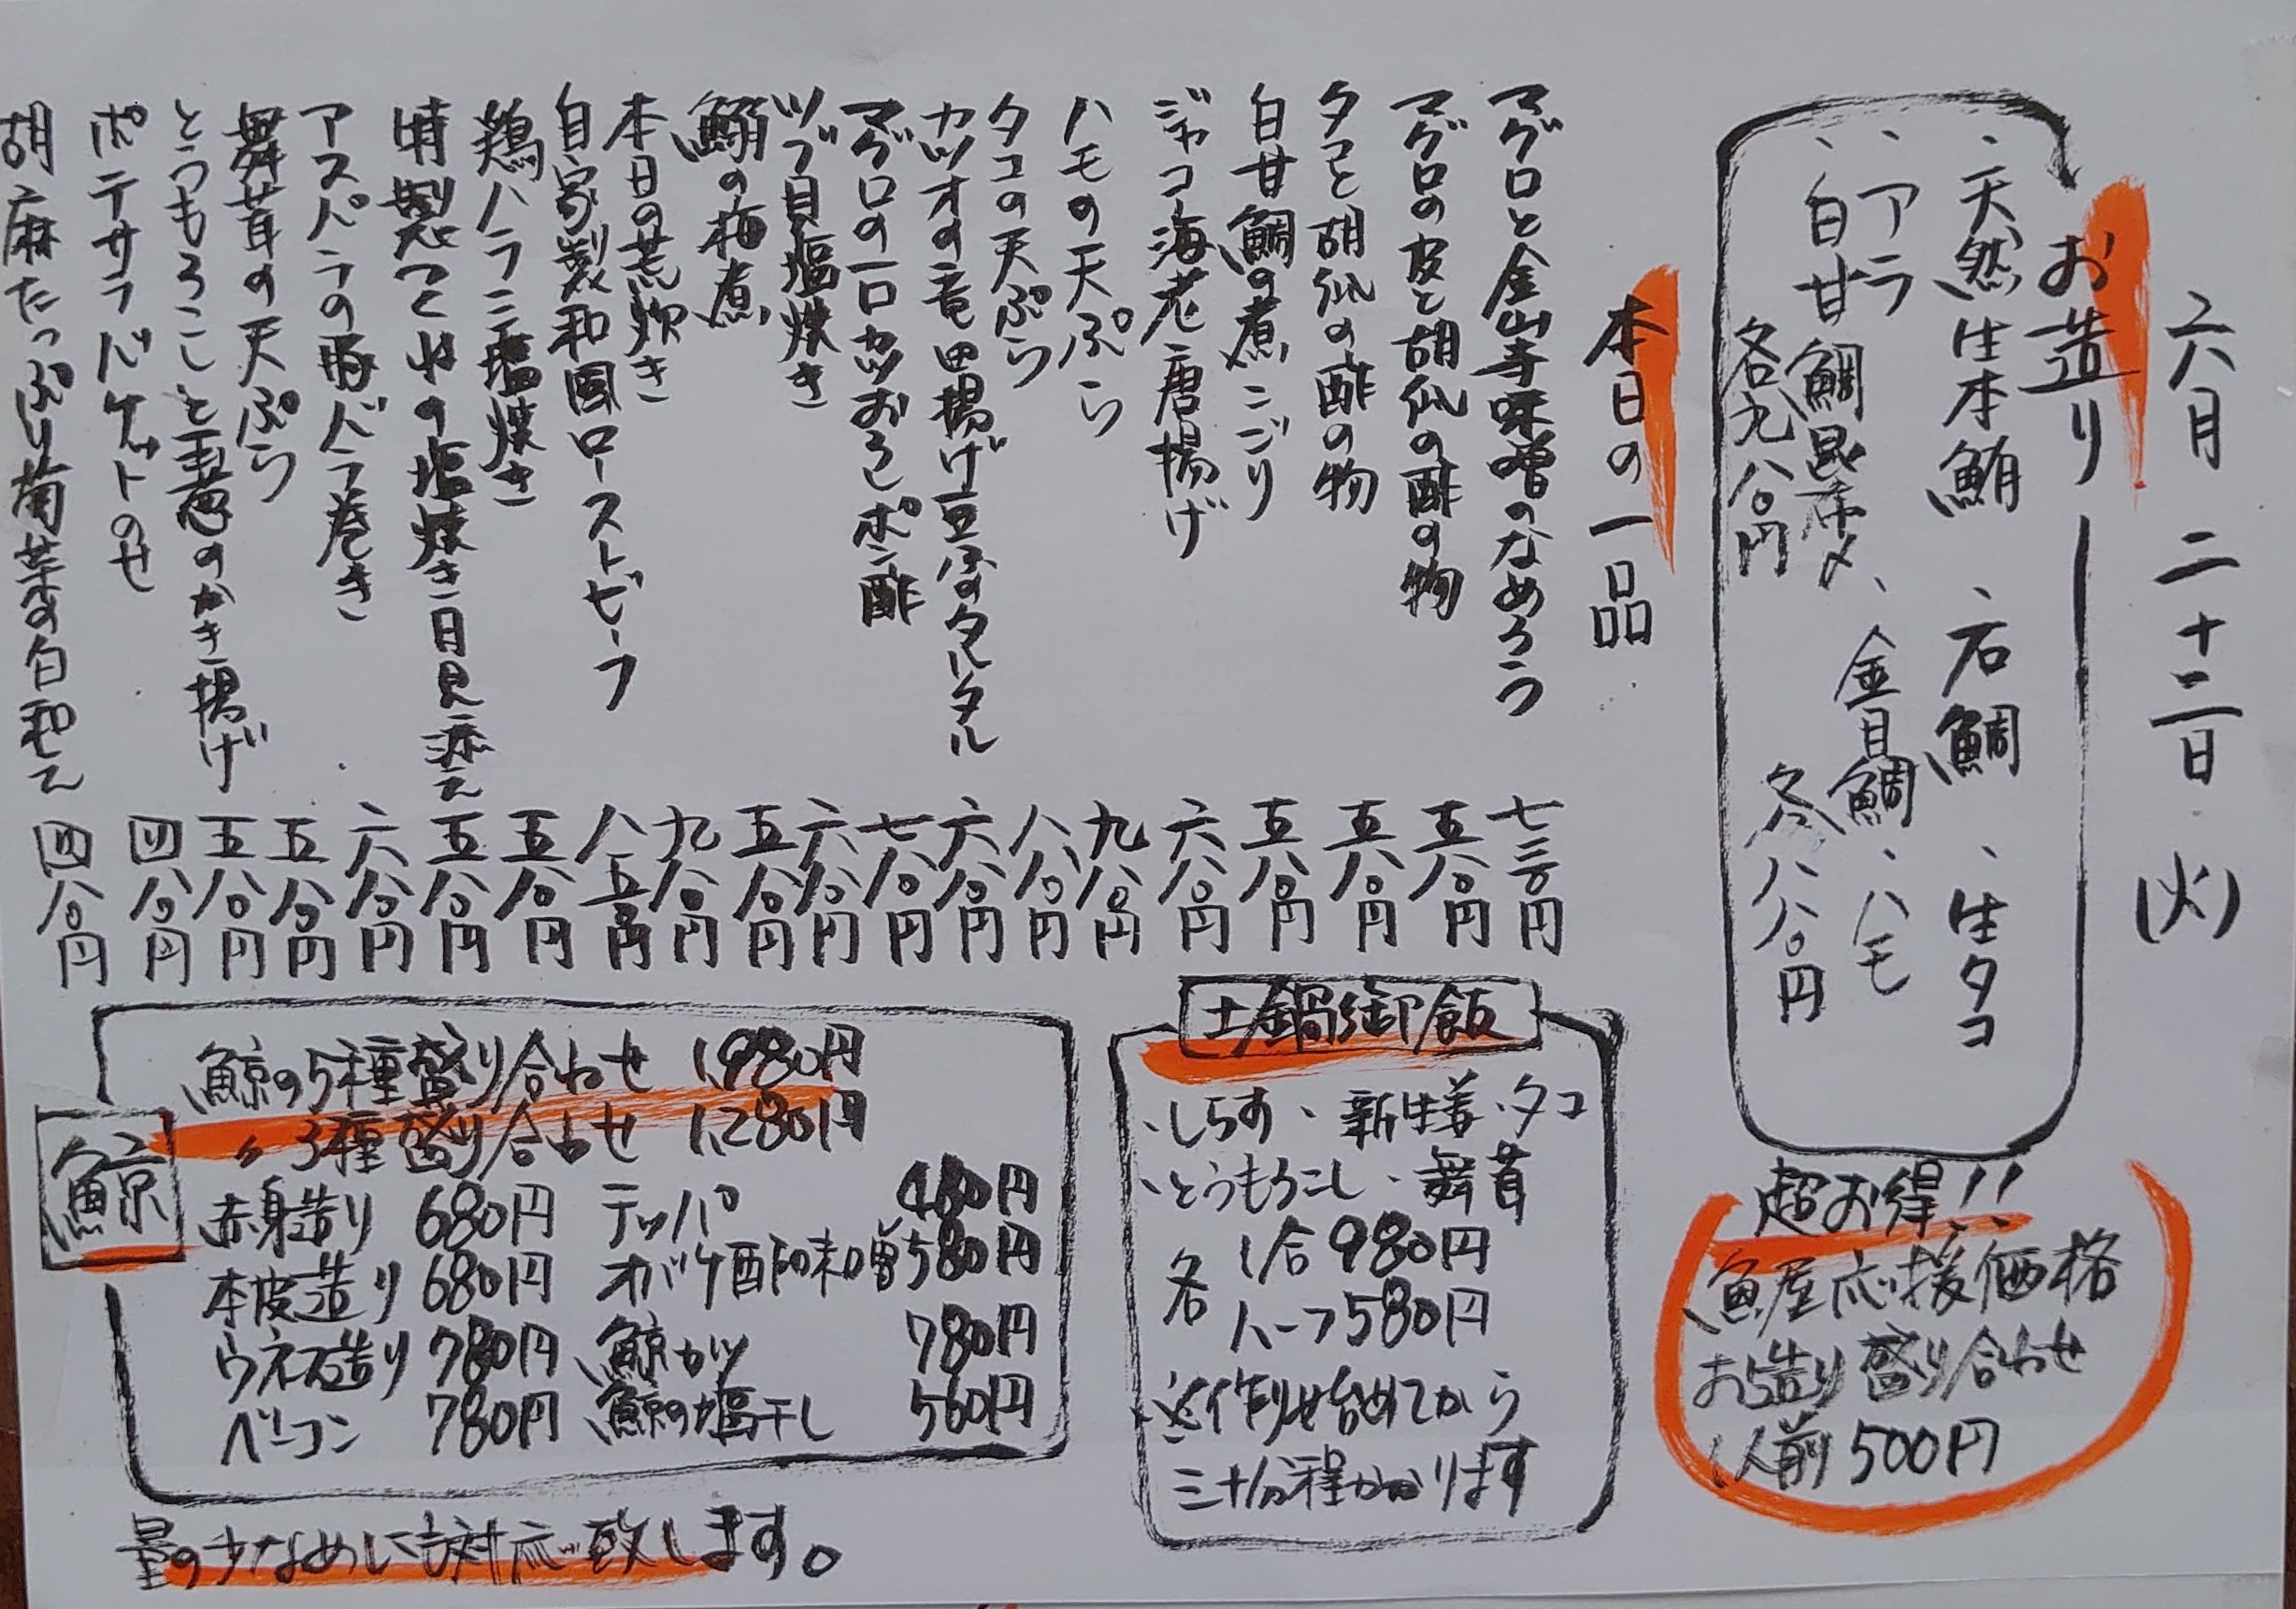 六月二十二日(火)
お造り
、天然生本鮪 、石鯛 、生タコ
、アラ
、白甘鯛昆布〆、金目鯛、ハモ
各九八〇円 各八八〇円
本日の一品
マグロと金山寺味噌のなめろう 七三〇円
マグロの皮と胡瓜の酢の物 五八〇円
タコと胡瓜の酢の物 五八〇円
白甘鯛の煮こごり 五八〇円
ジャコ海老唐揚げ 六八〇円
ハモの天ぷら 九八〇円
タコの天ぷら 八八〇円
カツオの竜田揚げ豆腐のタルタル 六八〇円
マグロの一口カツおろしポン酢 七八〇円
ツブ貝塩焼き 六八〇円
鰯の梅煮 五八〇円
本日の荒炊き 九八〇円
自家製和風ローストビーフ 八五〇円
鶏ハラミ塩焼き 五八〇円
特製つくねの塩焼き月見添え 五八〇円
アスパラの豚バラ巻き 六八〇円
舞茸の天ぷら 五八〇円
とうもろこしと玉葱のかき揚げ 五八〇円
ポテサラバケットのせ 四八〇円
胡麻たっぷり菊菜の白和え 四八〇円
超お得!!
魚屋応援価格
お造り盛り合わせ
1人前500円
土鍋御飯
、しらす、新生姜、タコ
、とうもろこし、舞茸
各 1合980円
ハーフ580円
※作り始めてから
三十分程かかります
鯨
鯨の5種盛り合わせ 1,980円
〃 3種盛り合わせ 1,280円
赤身造り 680円 テッパ 480円
本皮造り 680円 オバケ酢味噌 580円
ウネス造り 780円 鯨カツ 780円
ベーコン 780円 鯨の塩干し 560円
量の少なめにも対応致します。